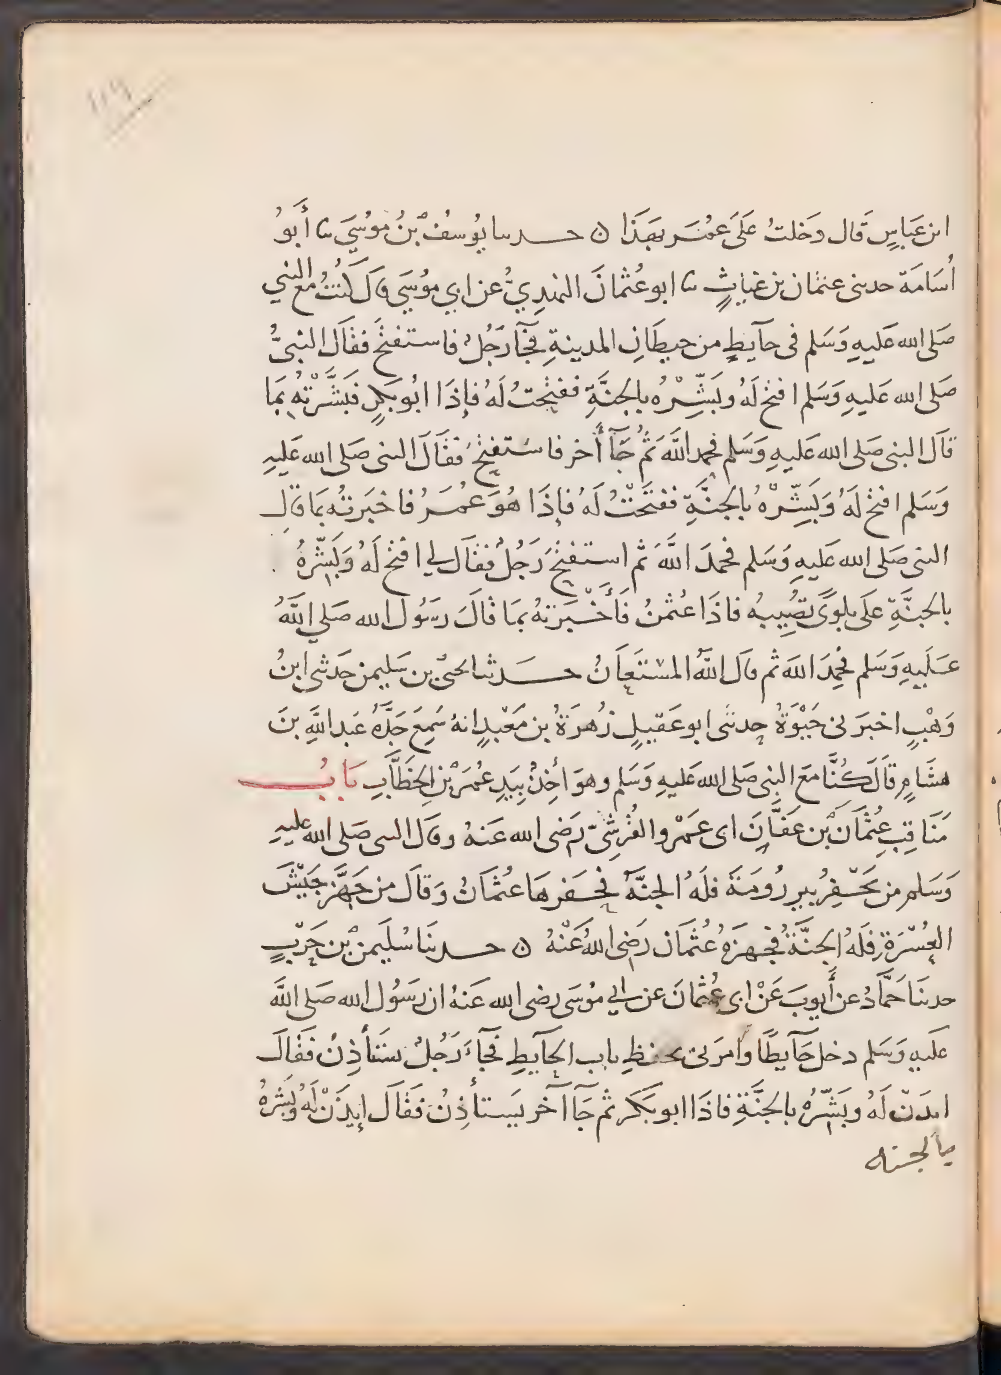 ١١٩
ابن عَبَاسٍ قَال دَخلتُ عَلَى عُمَر بهَذَا ٥ حـــدسا يُوسُفُ بْنُ مُوسَى سا أَبُو
أُسَامَة حدثنى عثمان بن غياثٍ سا ابو عُثمانَ النهديُّ عن ابي مُوسَى قال كنتُ مع النبي
صَلى الله عَليهِ وَسَلم فى حَايطٍ من حيطانِ المدينةِ فجآ رَجُلٌ فاستفتحَ فقالَ النبيُّ
صَلى الله عَليهِ وَسَلم افتح لَهُ وبَشِّرْهُ بالجنَّةِ ففتحتُ لَهُ فإذَا ابُو بَكرٍ فبَشَّرْتُهُ بمَا
قالَ النبى صَلى الله عَليهِ وَسَلم فحمد اللَّهَ ثمُ جَآ أخر فاستفتحَ فقالَ النبى صَلى الله عَليهِ
وَسَلم افتح لَهُ وَبَشِّرْهُ بالجنَّةِ ففتَحتُ لَهُ فإذَا هُوَ عُمَرُ فاخبَرتُه بمَا قال
النبى صَلى الله عَليهِ وَسَلم فحمدَ اللَّهَ ثم استفتحَ رَجُلٌ فقال لي افتح لَهُ وَبَشِّرهُ
بالجنَّةِ عَلى بلوَى تصُيبهُ فاذَا عُثمنُ فَأَخْبَرتهُ بمَا قالَ رسُول الله صَلى اللَّهُ
عَليهِ وَسَلم فحمِدَ اللهَ ثم قال اللَّهُ المسْتَعَانُ حـــدثنا يحيىَ بن سَليمن حَدثنى ابنُ
وَهْبٍ اخبرَنى حَيْوَةُ حدثنى ابو عَقيلٍ زُهرَةُ بن مَعْبَدٍ انهُ سَمِعَ جَدَّهُ عَبد اللَّهِ بنَ
هشَامٍ قالَ كُنَّا مَعَ النبى صَلى الله عَليهِ وَسَلم وهوَ أخِذٌ بيَدِ عُمرَ بْنِ الخطَّابِ بَابُ
مَنَاقِبِ عُثْمَانَ بْن عَفَّانَ ابى عَمْرٍو القُرَشيّ رَضى الله عَنهُ وقال النبى صَلى الله عليه
وَسَلم من يَحْفِرُ بيرِ رُومَةَ فلَهُ الجنَّةُ فحفرهَا عُثمانُ وَقالَ من جَهَّزَ جَيْشَ
العُسْرَةِ فلَهُ الجنَّةُ فجهزَهُ عُثمَان رَضى اللهُ عَنْهُ ٥ حـــدثنَا سُلَيمن بْن حَربٍ
حدثنَا حَمَّادُ عن أيوبَ عَنْ ابى عُثمانَ عن ابي مُوسَى رضى الله عَنهُ ان رَسُول الله صَلى اللهُ
عَليهِ وَسَلم دخل حَآيطًا وَامرَنى بحفظِ باب الحآيطِ فجآءَ رَجُلٌ يستأذِنُ فقَالَ
ايذَنْ لَهُ وبَشِّرْهُ بالجنَّةِ فاذَا ابو بَكر ثم جَآ آخر يَستأذِنُ فقالَ ايذَنْ لَهُ وَبَشِّرهُ
بالجنه